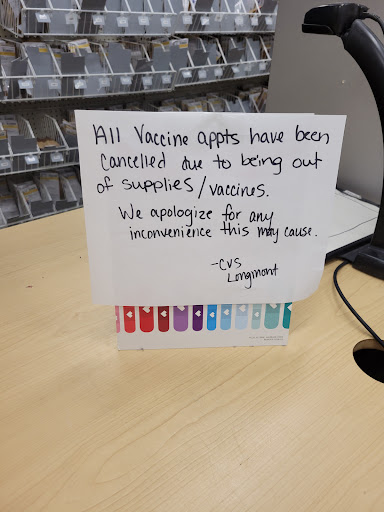 All Vaccine appts have been
Cancelled due to being out
of supplies/vaccines.
We apologize for any
inconvenience this may cause.
-CVS
Longmont